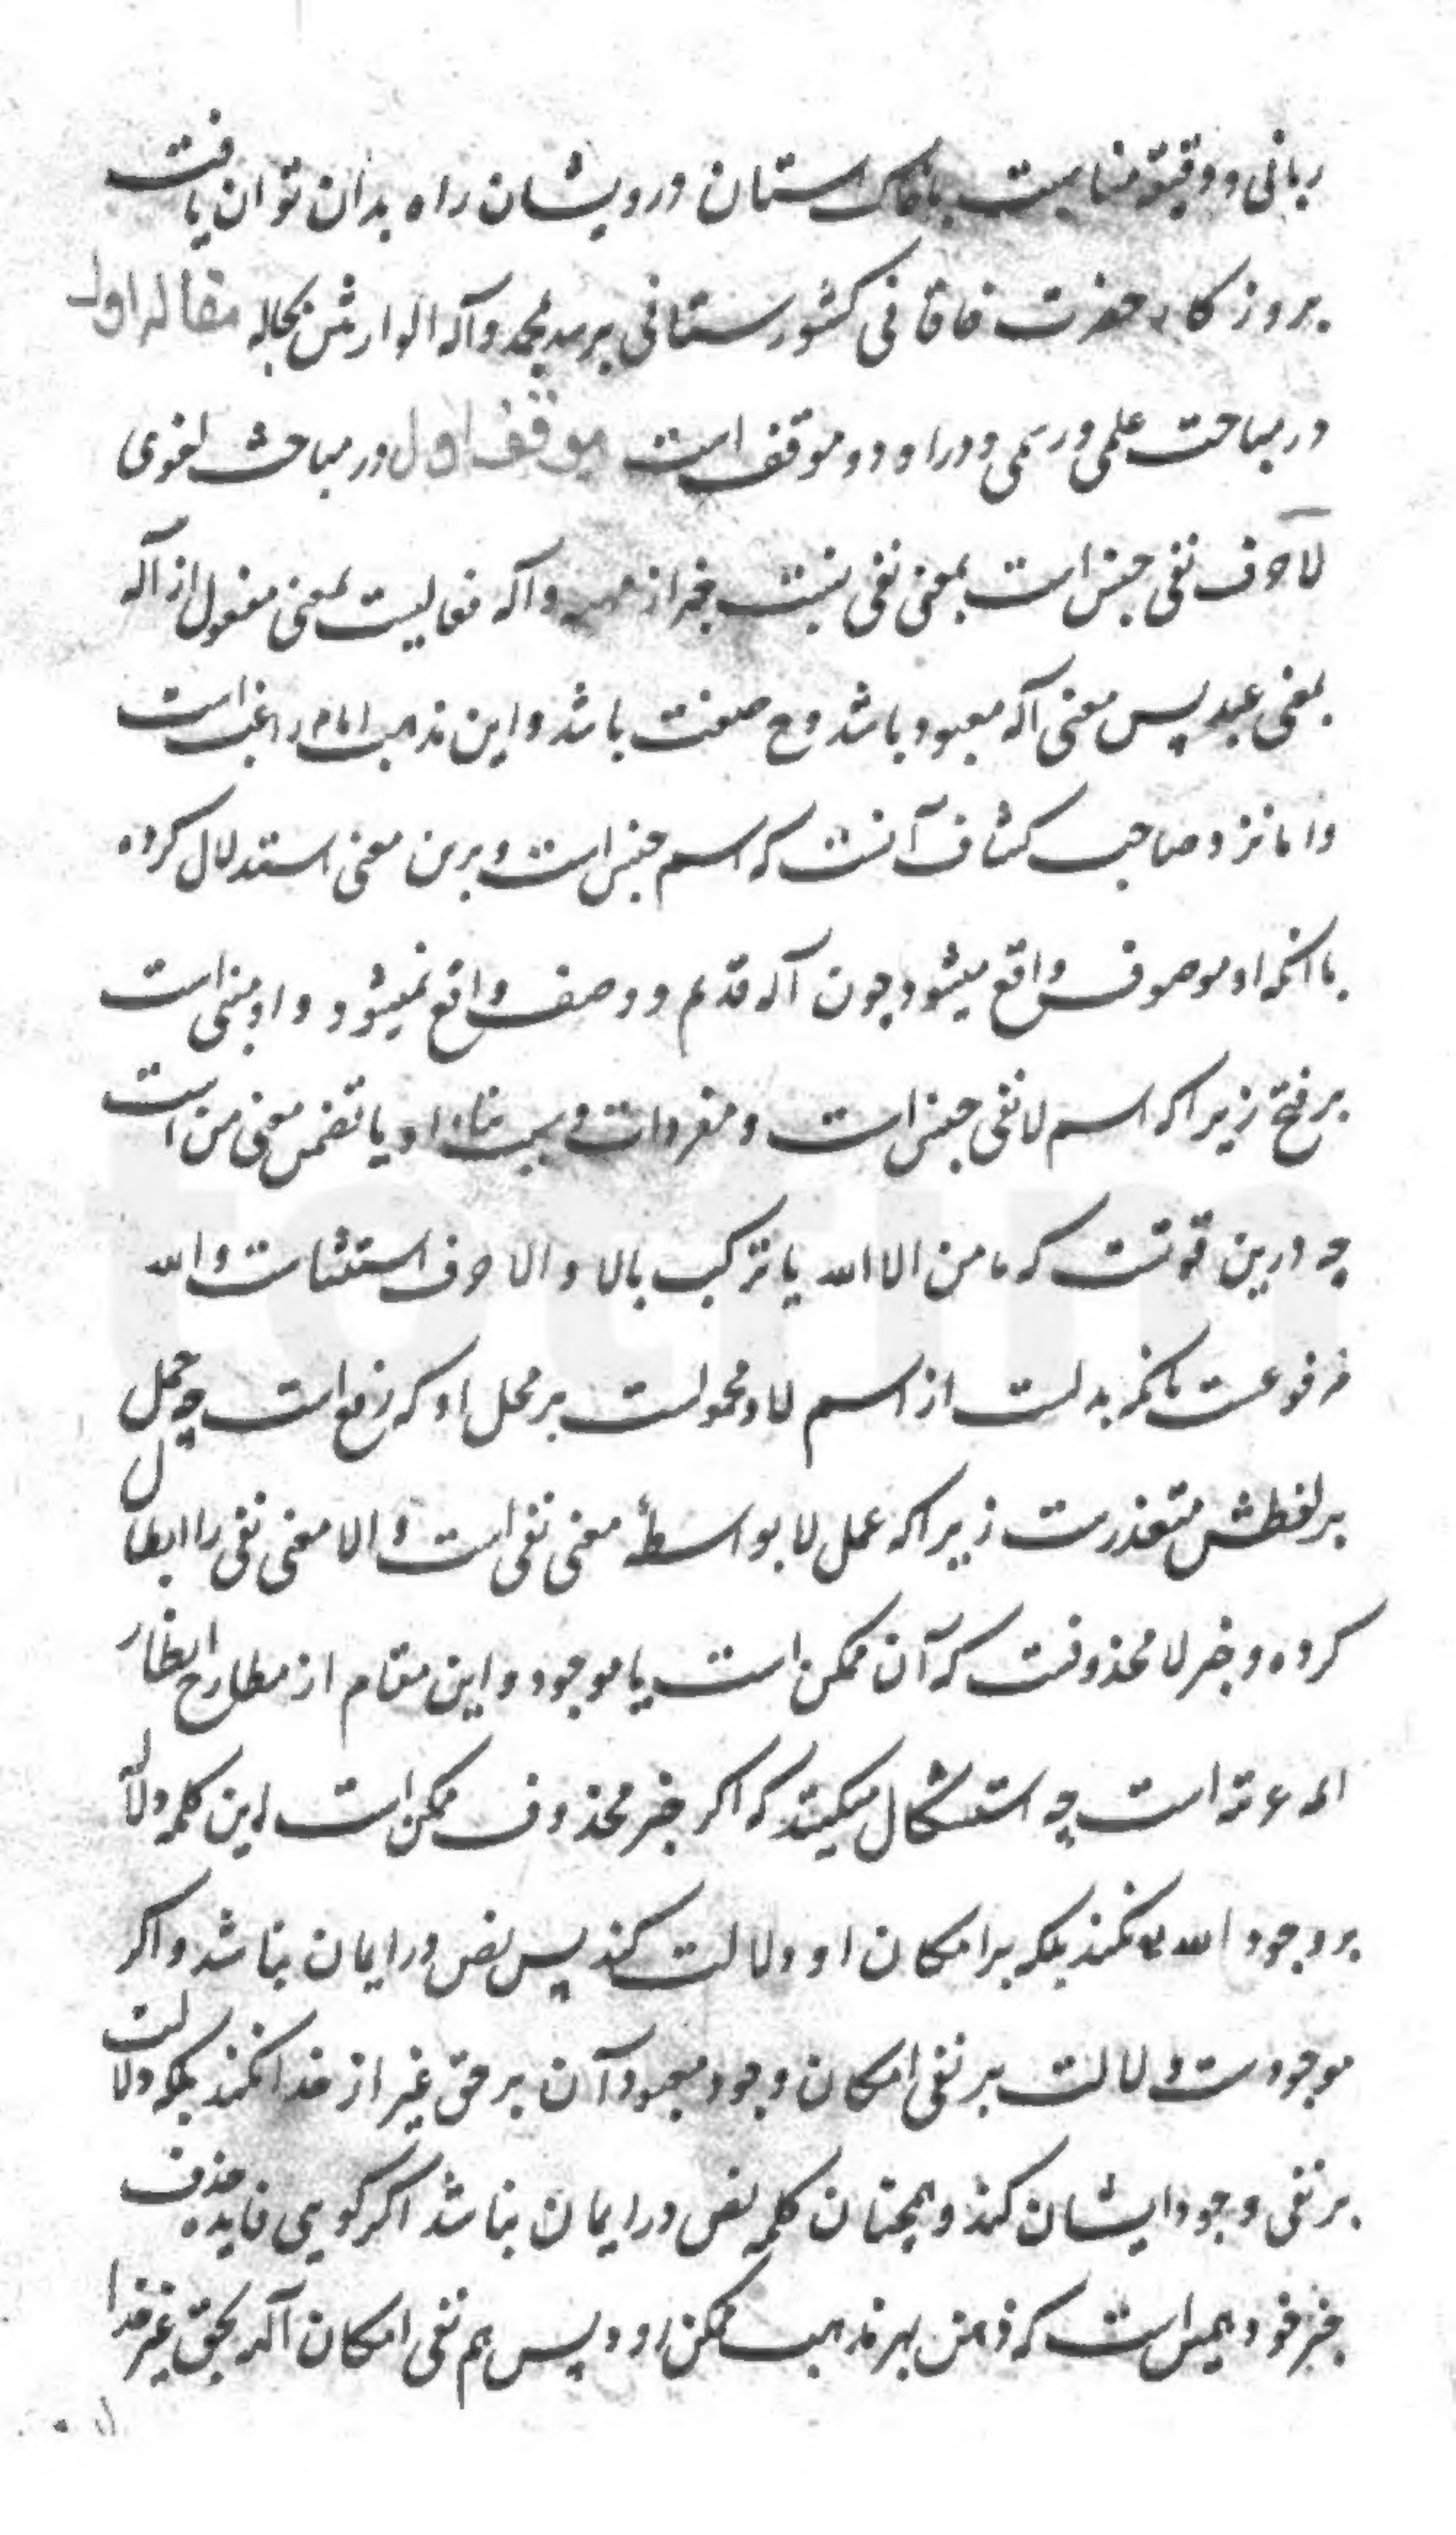 ربانی و دقیقهٔ مناسبت باخاک استان درویشان راه بدان توان یافت
بروزکار حضرت خاقانی کشورستانی برسد بمحمد وآله الوارثین بحاله مقاله اول
در مباحث علمی ورسمی ودراو دو موقف است موقف اول در مباحث لغوی
لا حرف نفی جنس است بمعنی نفی نسبت خبر از واله فعالیست بمعنی مفعول از اله
بمعنی عبد پس معنی اله معبود باشد وح صفت باشد واین مذهب امام راغب است
واما نزد صاحب کشاف آنست که اسم جنس است وبرین معنی استدلال کرده
بانکه او موصوف واقع میشود چون اله قدیم و وصف واقع نمیشود واو مبنی است
بر فتح زیراکه اسم لا نفی جنس است ومفردات وسبب بناء او یا تضمن معنی من است
چه درین قوتست که ما من الا الله یا ترکیب بالا والا حرف استثنات والله
مرفوعست بانکه بدلست از اسم لا ومحمولست بر محل او که رفع است چه حمل
بر لفظش متعذرست زیراکه عمل لا بواسطهٔ معنی نفی است والا معنی نفی را ابطال
کرده وخبر لا محذوفست که آن ممکن است یا موجود واین مقام از مطارح انظار
المه عربیه است چه استشکال میکنند که اکر خبر محذوف ممکن است این کلمه دلالت
بر وجود الله نکند بلکه بر امکان او دلالت کند پس نص در ایمان نباشد واکر
موجودست دلالت بر نفی امکان وجود معبود آن برحق غیر از خدا نکند بلکه دلالت
بر نفی وجود ایشان کند وهمچنان کلمه نص در ایمان نباشد اکر کویی فایده حذف
خبر خود همین است که ذهن بهر مذهب ممکن رود پس هم نفی امکان اله بحق غیر خدا